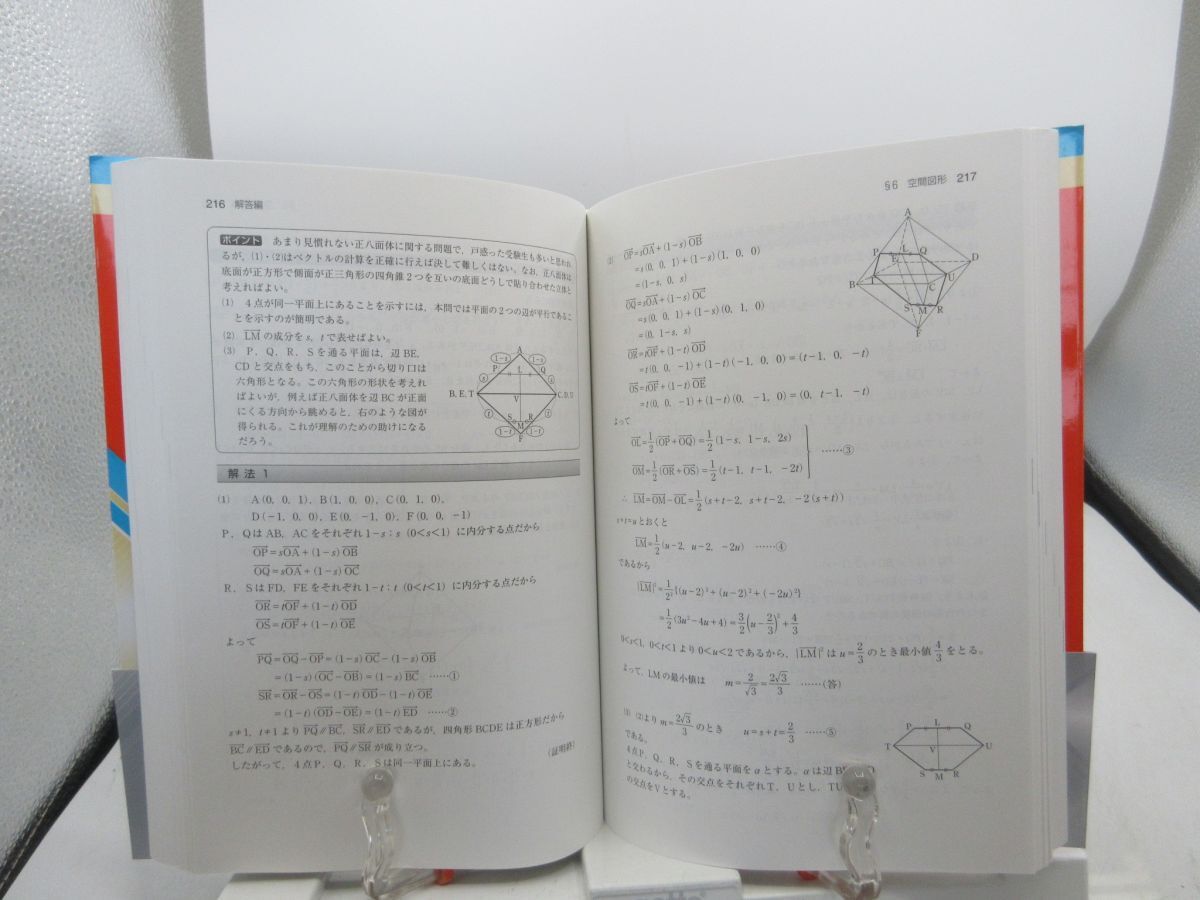 216 解答編
ポイント あまり見慣れない正八面体に関する問題で，戸惑った受験生も多いと思われ
るが，(1)・(2)はベクトルの計算を正確に行えば決して難しくはない。なお，正八面体は
底面が正方形で側面が正三角形の四角錐2つを互いの底面どうしで貼り合わせた立体と
考えればよい。
(1) 4点が同一平面上にあることを示すには，本問では平面の2つの辺が平行であるこ
とを示すのが簡明である。
(2) LMの成分をs，tで表せばよい。
(3) P，Q，R，Sを通る平面は，辺BE，
CDと交点をもち，このことから切り口は
六角形となる。この六角形の形状を考えれ
ばよいが，例えば正八面体を辺BCが正面
にくる方向から眺めると，右のような図が
得られる。これが理解のための助けになる
だろう。
A
1-s 1-s
P L Q
s s
B, E, T C, D, U
V
t t
S M R
1-t F 1-t
解法1
(1) A(0, 0, 1), B(1, 0, 0), C(0, 1, 0),
D(-1, 0, 0), E(0, -1, 0), F(0, 0, -1)
P，QはAB，ACをそれぞれ1-s：s (0<s<1) に内分する点だから
OP=sOA+(1-s)OB
OQ=sOA+(1-s)OC
R，SはFD，FEをそれぞれ1-t：t (0<t<1) に内分する点だから
OR=tOF+(1-t)OD
OS=tOF+(1-t)OE
よって
PQ=OQ-OP=(1-s)OC-(1-s)OB
=(1-s)(OC-OB)=(1-s)BC ……①
SR=OR-OS=(1-t)OD-(1-t)OE
=(1-t)(OD-OE)=(1-t)ED ……②
s≠1，t≠1よりPQ∥BC，SR∥EDであるが，四角形BCDEは正方形だから
BC∥EDであるので，PQ∥SRが成り立つ。
したがって，4点P，Q，R，Sは同一平面上にある。 (証明終)
§6 空間図形 217
(2) OP=sOA+(1-s)OB
=s(0, 0, 1)+(1-s)(1, 0, 0)
=(1-s, 0, s)
OQ=sOA+(1-s)OC
=s(0, 0, 1)+(1-s)(0, 1, 0)
=(0, 1-s, s)
OR=tOF+(1-t)OD
=t(0, 0, -1)+(1-t)(-1, 0, 0)=(t-1, 0, -t)
OS=tOF+(1-t)OE
=t(0, 0, -1)+(1-t)(0, -1, 0)=(0, t-1, -t)
A
P L Q
E D
B T C U
S M R
F
よって
OL=1/2(OP+OQ)=1/2(1-s, 1-s, 2s)
OM=1/2(OR+OS)=1/2(t-1, t-1, -2t) ……③
∴ LM=OM-OL=1/2(s+t-2, s+t-2, -2(s+t))
s+t=uとおくと
LM=1/2(u-2, u-2, -2u) ……④
であるから
|LM|²=1/2²{(u-2)²+(u-2)²+(-2u)²}
=1/2(3u²-4u+4)=3/2(u-2/3)²+4/3
0<s<1，0<t<1より0<u<2であるから，|LM|²はu=2/3のとき最小値4/3をとる。
よって，LMの最小値は m=2/√3=2√3/3 ……(答)
(3) (2)よりm=2√3/3のとき u=s+t=2/3 ……⑤
である。
4点P，Q，R，Sを通る平面をαとする。αは辺B
と交わるから，その交点をそれぞれT，Uとし，TU
の交点をVとする。
P L Q
T V U
S M R